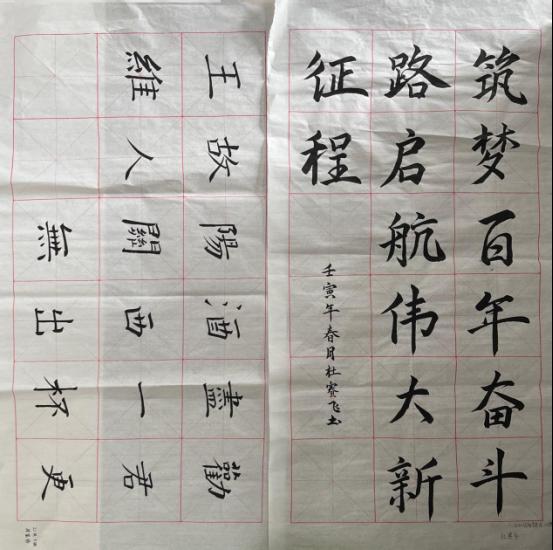 筑梦百年奋斗
路启航伟大新
征程
壬寅年春月杜赛飞书
勸君更
盡一杯
酒西出
陽關無
故人
王維